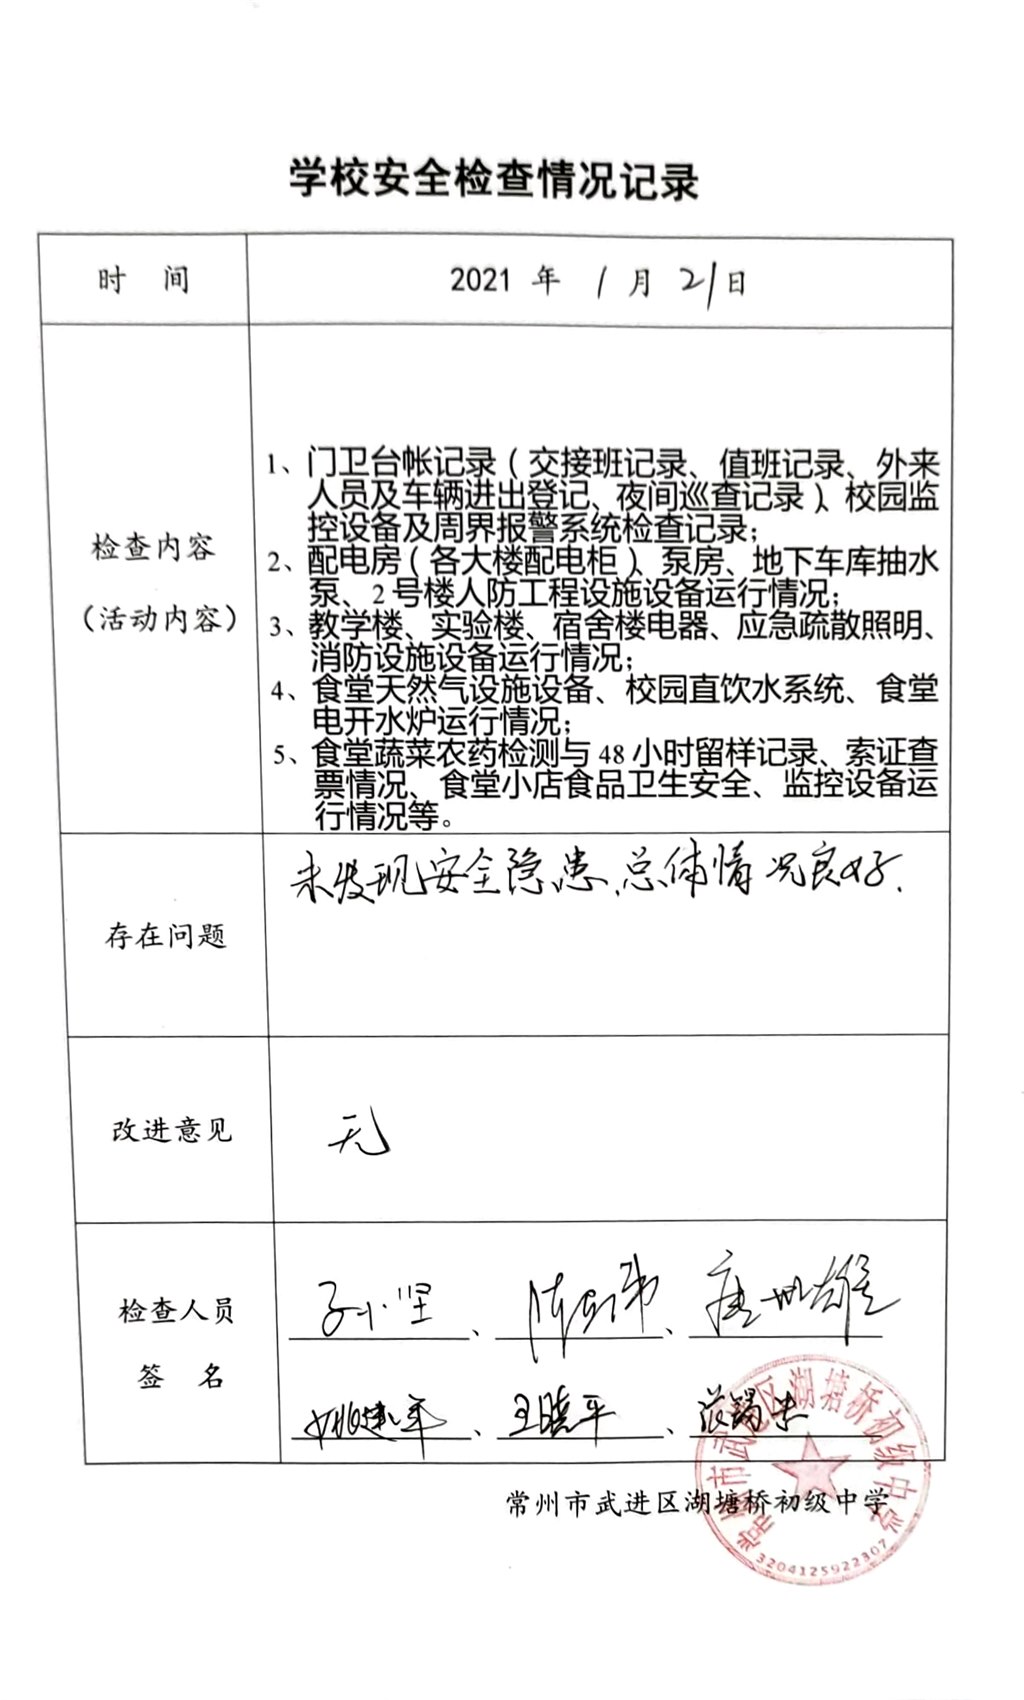 学校安全检查情况记录
时 间
2021 年 1 月 21 日
检查内容
（活动内容）
1、门卫台帐记录（交接班记录、值班记录、外来
人员及车辆进出登记、夜间巡查记录）、校园监
控设备及周界报警系统检查记录；
2、配电房（各大楼配电柜）、泵房、地下车库抽水
泵、2 号楼人防工程设施设备运行情况；
3、教学楼、实验楼、宿舍楼电器、应急疏散照明、
消防设施设备运行情况；
4、食堂天然气设施设备、校园直饮水系统、食堂
电开水炉运行情况；
5、食堂蔬菜农药检测与 48 小时留样记录、索证查
票情况、食堂小店食品卫生安全、监控设备运
行情况等。
存在问题
未发现安全隐患，总体情况良好.
改进意见
无
检查人员
签 名
孙小坚、
姚建年、王晓平、
常州市武进区湖塘桥初级中学
常州市武进区湖塘桥初级中学
3204125922307